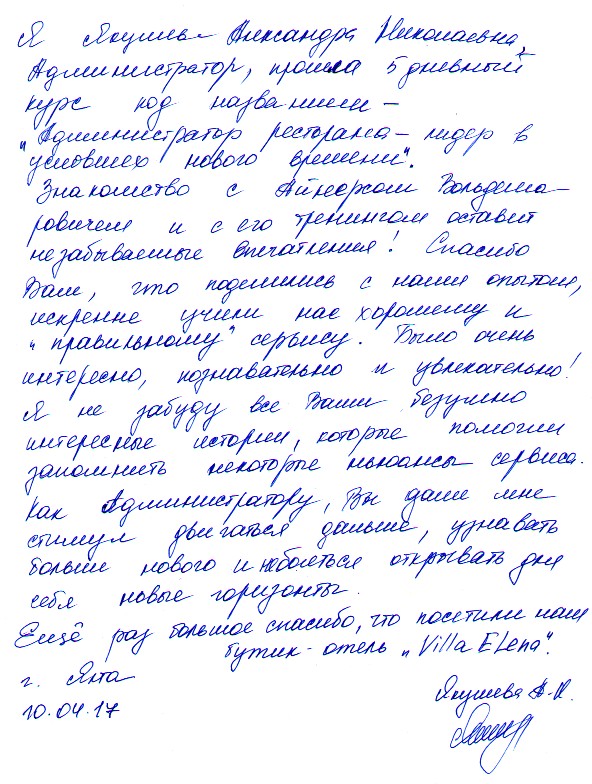 Я Якушева Александра Николаевна,
Администратор, прошла 5 дневный
курс под названием –
"Администратор ресторана – лидер в
условиях нового времени".
Знакомство с Айнарсом Вольдема–
ровичем и с его тренингом оставит
незабываемые впечатления! Спасибо
Вам, что поделились с нами опытом,
искренне учили нас хорошему и
"правильному" сервису. Было очень
интересно, познавательно и увлекательно!
Я не забуду все Ваши безумно
интересные истории, которые помогли
запомнить некоторые ньюансы сервиса.
Как Администратору, Вы дали мне
стимул двигаться дальше, узнавать
больше нового и не бояться открывать для
себя новые горизонты.
Ещё раз большое спасибо, что посетили наш
бутик-отель „Villa ELena".
г. Ялта
10.04.17
Якушева А.Н.